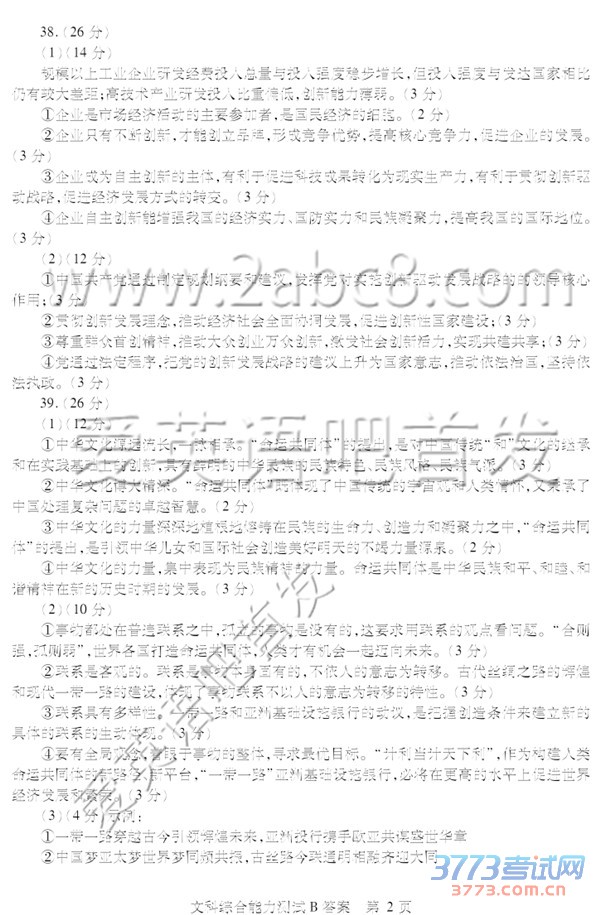 38.(26 分)
(1)(14 分)
规模以上工业企业研发经费投入总量与投入强度稳步增长,但投入强度与发达国家相比
仍有较大差距;高技术产业研发投入比重偏低,创新能力薄弱。(3 分)
①企业是市场经济活动的主要参加者,是国民经济的细胞。(2 分)
②企业只有不断创新,才能创立品牌,形成竞争优势,提高核心竞争力,促进企业的发展。
(3 分)
③企业成为自主创新的主体,有利于促进科技成果转化为现实生产力,有利于贯彻创新驱
动战略,促进经济发展方式的转变。(3 分)
④企业自主创新能增强我国的经济实力、国防实力和民族凝聚力,提高我国的国际地位。
(3 分)
(2)(12 分)
①中国共产党通过制定规划纲要和建议,发挥党对实施创新驱动发展战略的的领导核心
作用;(3 分)
②贯彻创新发展理念,推动经济社会全面协调发展,促进创新性国家建设;(3 分)
③尊重群众首创精神,推动大众创业万众创新,激发社会创新活力,实现共建共享;(3 分)
④党通过法定程序,把党的创新发展战略的建议上升为国家意志,推动依法治国,坚持依
法执政。(3 分)
39.(26 分)
(1)(12 分)
①中华文化源远流长,一脉相承。“命运共同体”的提出,是对中国传统“和”文化的继承
和在实践基础上的创新,具有鲜明的中华民族的民族特色、民族风格、民族气派。(3 分)
②中华文化博大精深。“命运共同体”既体现了中国传统的宇宙观和人类情怀,又秉承了
中国处理复杂问题的卓越智慧。(2 分)
③中华文化的力量深深地植根地熔铸在民族的生命力、创造力和凝聚力之中,“命运共同
体”的提出,是引领中华儿女和国际社会创造美好明天的不竭力量源泉。(2 分)
④中华文化的力量,集中表现为民族精神的力量。命运共同体是中华民族和平、和睦、和
谐精神在新的历史时期的发展。(3 分)
(2)(10 分)
①事物都处在普遍联系之中,孤立的事物是没有的,这要求用联系的观点看问题。“合则
强,孤则弱”,世界各国打造命运共同体,人类才有机会一起迈向未来。(3 分)
②联系是客观的。联系是事物本身固有的,不依人的意志为转移。古代丝绸之路的辉煌
和现代一带一路的建设,体现了事物联系不以人的意志为转移的特性。(3 分)
③联系具有多样性。一带一路和亚洲基础设施银行的动议,是把握创造条件来建立新的
具体的联系的生动体现。(3 分)
④要有全局观念,着眼于事物的整体,寻求最优目标。“计利当计天下利”,作为构建人类
命运共同体的新路径、新平台,“一带一路”亚洲基础设施银行,必将在更高的水平上促进世界
经济发展和繁荣。(3 分)
(3)(4 分)示例:
①一带一路穿越古今引领辉煌未来,亚洲投行携手欧亚共谋盛世华章
②中国梦亚太梦世界梦同频共振,古丝路今联通明相融齐迎大同
文科综合能力测试 B 答案 第 2 页
www.2abc8.com
爱英语吧首发
爱英语吧首发
3773考试网
www.3773.com